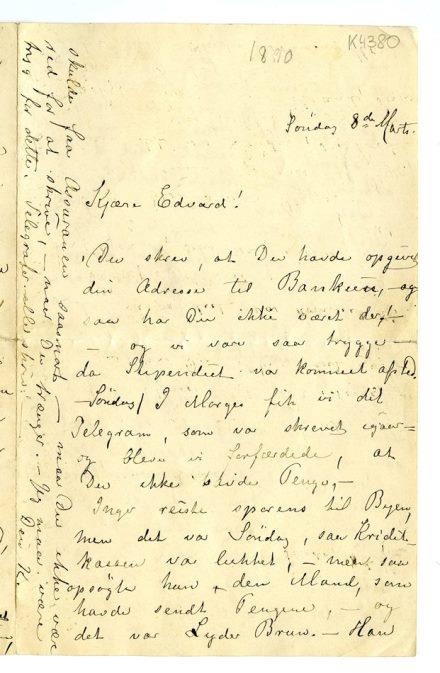 1890
K4380
Søndag 8de Marts.
Kjære Edvard!
Du skrev, at Du havde opgivet
din Adresse til Banken, – og
saa har Du ikke været der,!
– og vi vare saa trygge –
da Stipendiet var kommet afsted.
Søndag / I Morges fik vi dit
Telegram, som var skrevet igaar –
og bleve vi forfærdede, at
Du ikke havde Penge, –
Inger reiste sporens til Byen,
men det var Søndag, saa Kredit-
kassen var lukket, – men saa
opsøgte hun den Mand, som
havde sendt Pengene, – og
det var Lyder Brun. – Han
skulde faa
saasnart – maa Du ikke være
ked for at skrive, – naar Du trænger. – Jeg maa være
tryg for dette. Telegrafer
Din K.